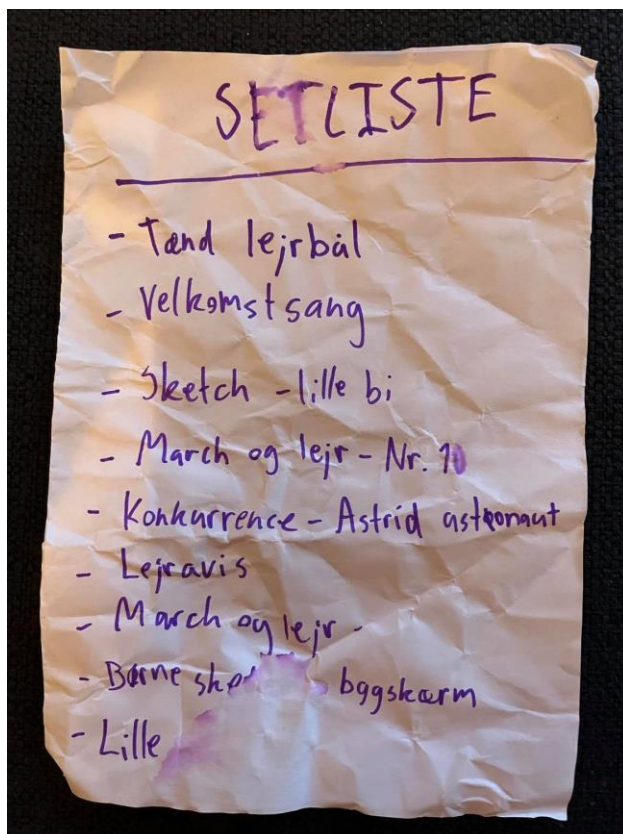 SETLISTE
- Tænd lejrbål
- Velkomstsang
- Sketch - lille bi
- March og lejr - Nr. 10
- Konkurrence - Astrid astronaut
- Lejravis
- March og lejr -
- Børne bagskærm
- Lille